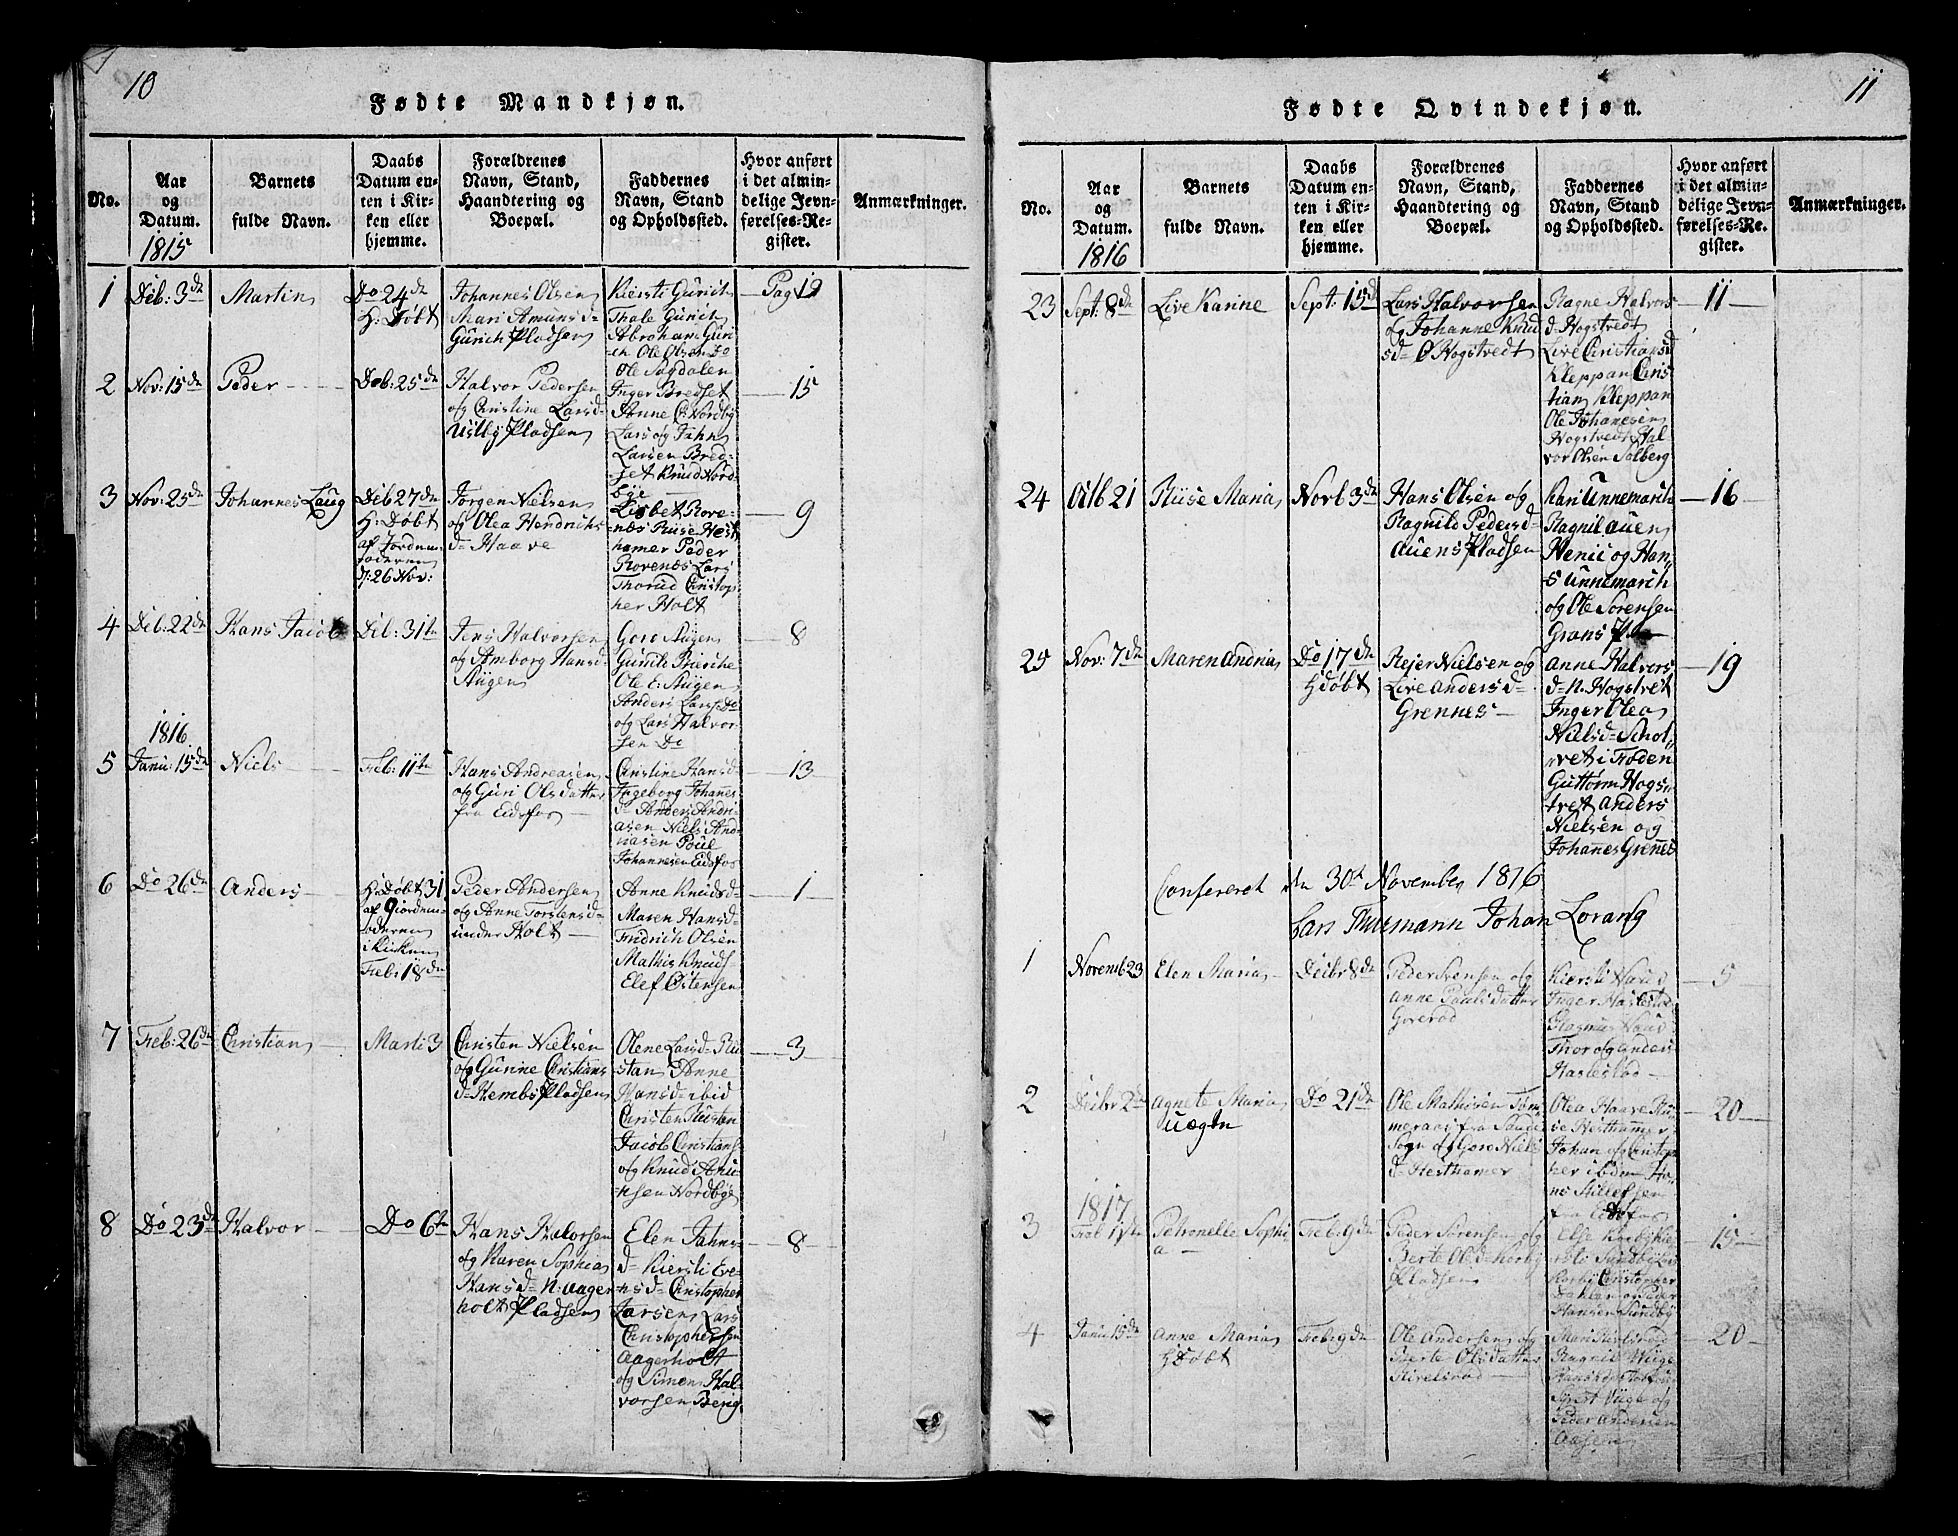 10
Fødte Mandkjøn.
No.
Aar
og
Datum.
1815
Barnets
fulde Navn.
Daabs
Datum en-
ten i Kir-
ken eller
hjemme.
Forældrenes
Navn, Stand,
Haandtering og
Boepæl.
Faddernes
Navn, Stand
og Opholdssted.
Hvor anført
i det almin-
delige Jevn-
førelses-Re-
gister.
Anmærkninger.
1
Deb: 3de
Martin
Do 24de
H: Døbt
Johannes Olsen
Mari Amunsd-
Gürich Pladsen
Kiersti Gürich
Thale Gürich
Abraham Güri-
ch Ole Olsen Do
Ole Sagdalen
Pag 19
2
Nov: 15de
Peder
Deb: 25de
Halvor Pedersen
og Christine Larsd-
Pladsen
Inger Bredset
Anne Ch Nordby
Lars og Jahn
Larsen Bred-
set Knud Nord-
bye
15
3
Nov: 25de
Johannes Laug
Deb 27de
H: Døbt
af Jordem-
oderen
d: 26 Nov:
Jørgen Nielsen
og Olea Hendrichs
d- Haave
Lisbet Rore-
næs Ruse Hest
hamer Peder
Rorenæs Lars
Thorud Christop-
her Holt
9
4
Deb: 22de
Hans Jacob
Deb: 31te
Jens Halvorsen
og Amborg Hansd-
Stügen
Goro Stügen
Gunild Bierche
Ole E: Stügen
Anders Lars Do
og Lars Halvor-
sen Do
8
1816
5
Janu: 15de
Niels
Feb: 11te
Hans Andreasen
og Guri Olsdatter
fra Eidsfos
Christine Hansd-
Ingeborg Johannes
d- Anders Andri-
asen Niels And-
riasen Poul
Johannesen Eidsfos
13
6
Do 26de
Anders
H: Døbt 31
af Giordem-
oderen
i Kirken
Feb: 18de
Peder Andersen
og Anne Torstensd-
under Holt
Anne Knudsd-
Maren Hansd-
Fridrich Olsen
Mathis Knuds-
Elef Østensen
1
7
Feb: 26de
Christian
Marti 3
Christen Nielsen
og Gurine Christians
d- Hembs Pladsen
Olene Larsd- Ru-
stan Anne
Hansd- ibid
Christen Rustan
Jacob Christians
og Knud
nsen Nordbye
3
8
Do 23de
Halvor
Do 6te
Hans Halvorsen
og Karen Sophia
Hansd- N: Aager
holt Pladsen
Elen Jahns-
d- Kiersti Eve-
nsd- Christopher
Larsen Lars
Christophersen
Aagerholt
og Simen Hal-
vorsen Berg
8
11
Fødte Qvindekjøn.
No.
Aar
og
Datum.
1816
Barnets
fulde Navn.
Daabs
Datum en-
ten i Kir-
ken eller
hjemme.
Forældrenes
Navn, Stand,
Haandtering og
Boepæl.
Faddernes
Navn, Stand
og Opholdssted.
Hvor anført
i det almin-
delige Jevn-
førelses-Re-
gister.
Anmærkninger.
23
Sept: 8de
Live Karine
Sept: 15de
Lars Halvorsen
og Johanne Knud
sd- Ø Hogstvedt
Ragne Halvors
d- Hogstvedt
Live Christiansd
Kleppan Chris-
tian Kleppan
Ole Johanesen
Hogstvedt Hal-
vor Olsen Solberg
11
24
21
Ruse Maria
Novb 3de
Hans Olsen og
Ragnild Pedersd-
Auens Pladsen
Kari Unnemarch
Ragnil Auen
og Han-
s Unnemarch
og Ole Sørensen
Grans
16
25
Nov: 7de
Maren Andria
Do 17de
H døbt
Rejer Nielsen og
Live Andersd-
Grennes
Anne Halvors
d- N. Hogstvet
Inger Olea
Nielsd- Schol-
rvet i Froden
Guttorm Hogs-
tvet Anders
Nielsen og
Johanes Grenes
19
Confereret den 30te November 1816
Lars Thurmann Johan Lorang
1
Novemb 23
Elen Maria
Deibr 8de
Peder Svensen og
Anne Poulsdatter
Goverød
Kiersti
Inger Haslestad
Thor og Anders
Haslestad
5
2
Deibr 2de
Agnete Maria
Uægte
Do 21de
Ole Mathisen Tøm-
mermand fra Sande
Sogn og Gore Niels
d- Hesthamer
Olea Haave Ru-
se Hesthamer
Johan og Christop-
her ibidem
fra Eidsfos
20
1817
3
Petronelle Sophi
a
Feb: 9de
Peder Sørensen og
Berte Olsd Korby
Pladsen
Else Korby Kie
rsti Sundby
Korby Christopher
Dahlen og Peder
Hansen Sundby
15
4
Janu 15de
Anne Maria
H døbt
Feb: 9de
Ole Andersen og
Berte Olsdatter
Ragnil Wüge
Wüge og
Peder Andersen
Aasen
20